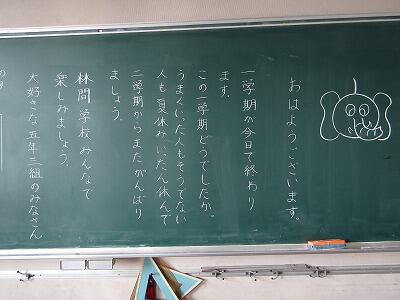 おはようございます。
一学期が今日で終わり
ます。
この一学期どうでしたか。
うまくいった人もそうでない
人も夏休みいったん休んで
二学期からまたがんばり
ましょう。
林間学校みんなで
楽しみましょう。
大好きな五年三組のみなさん